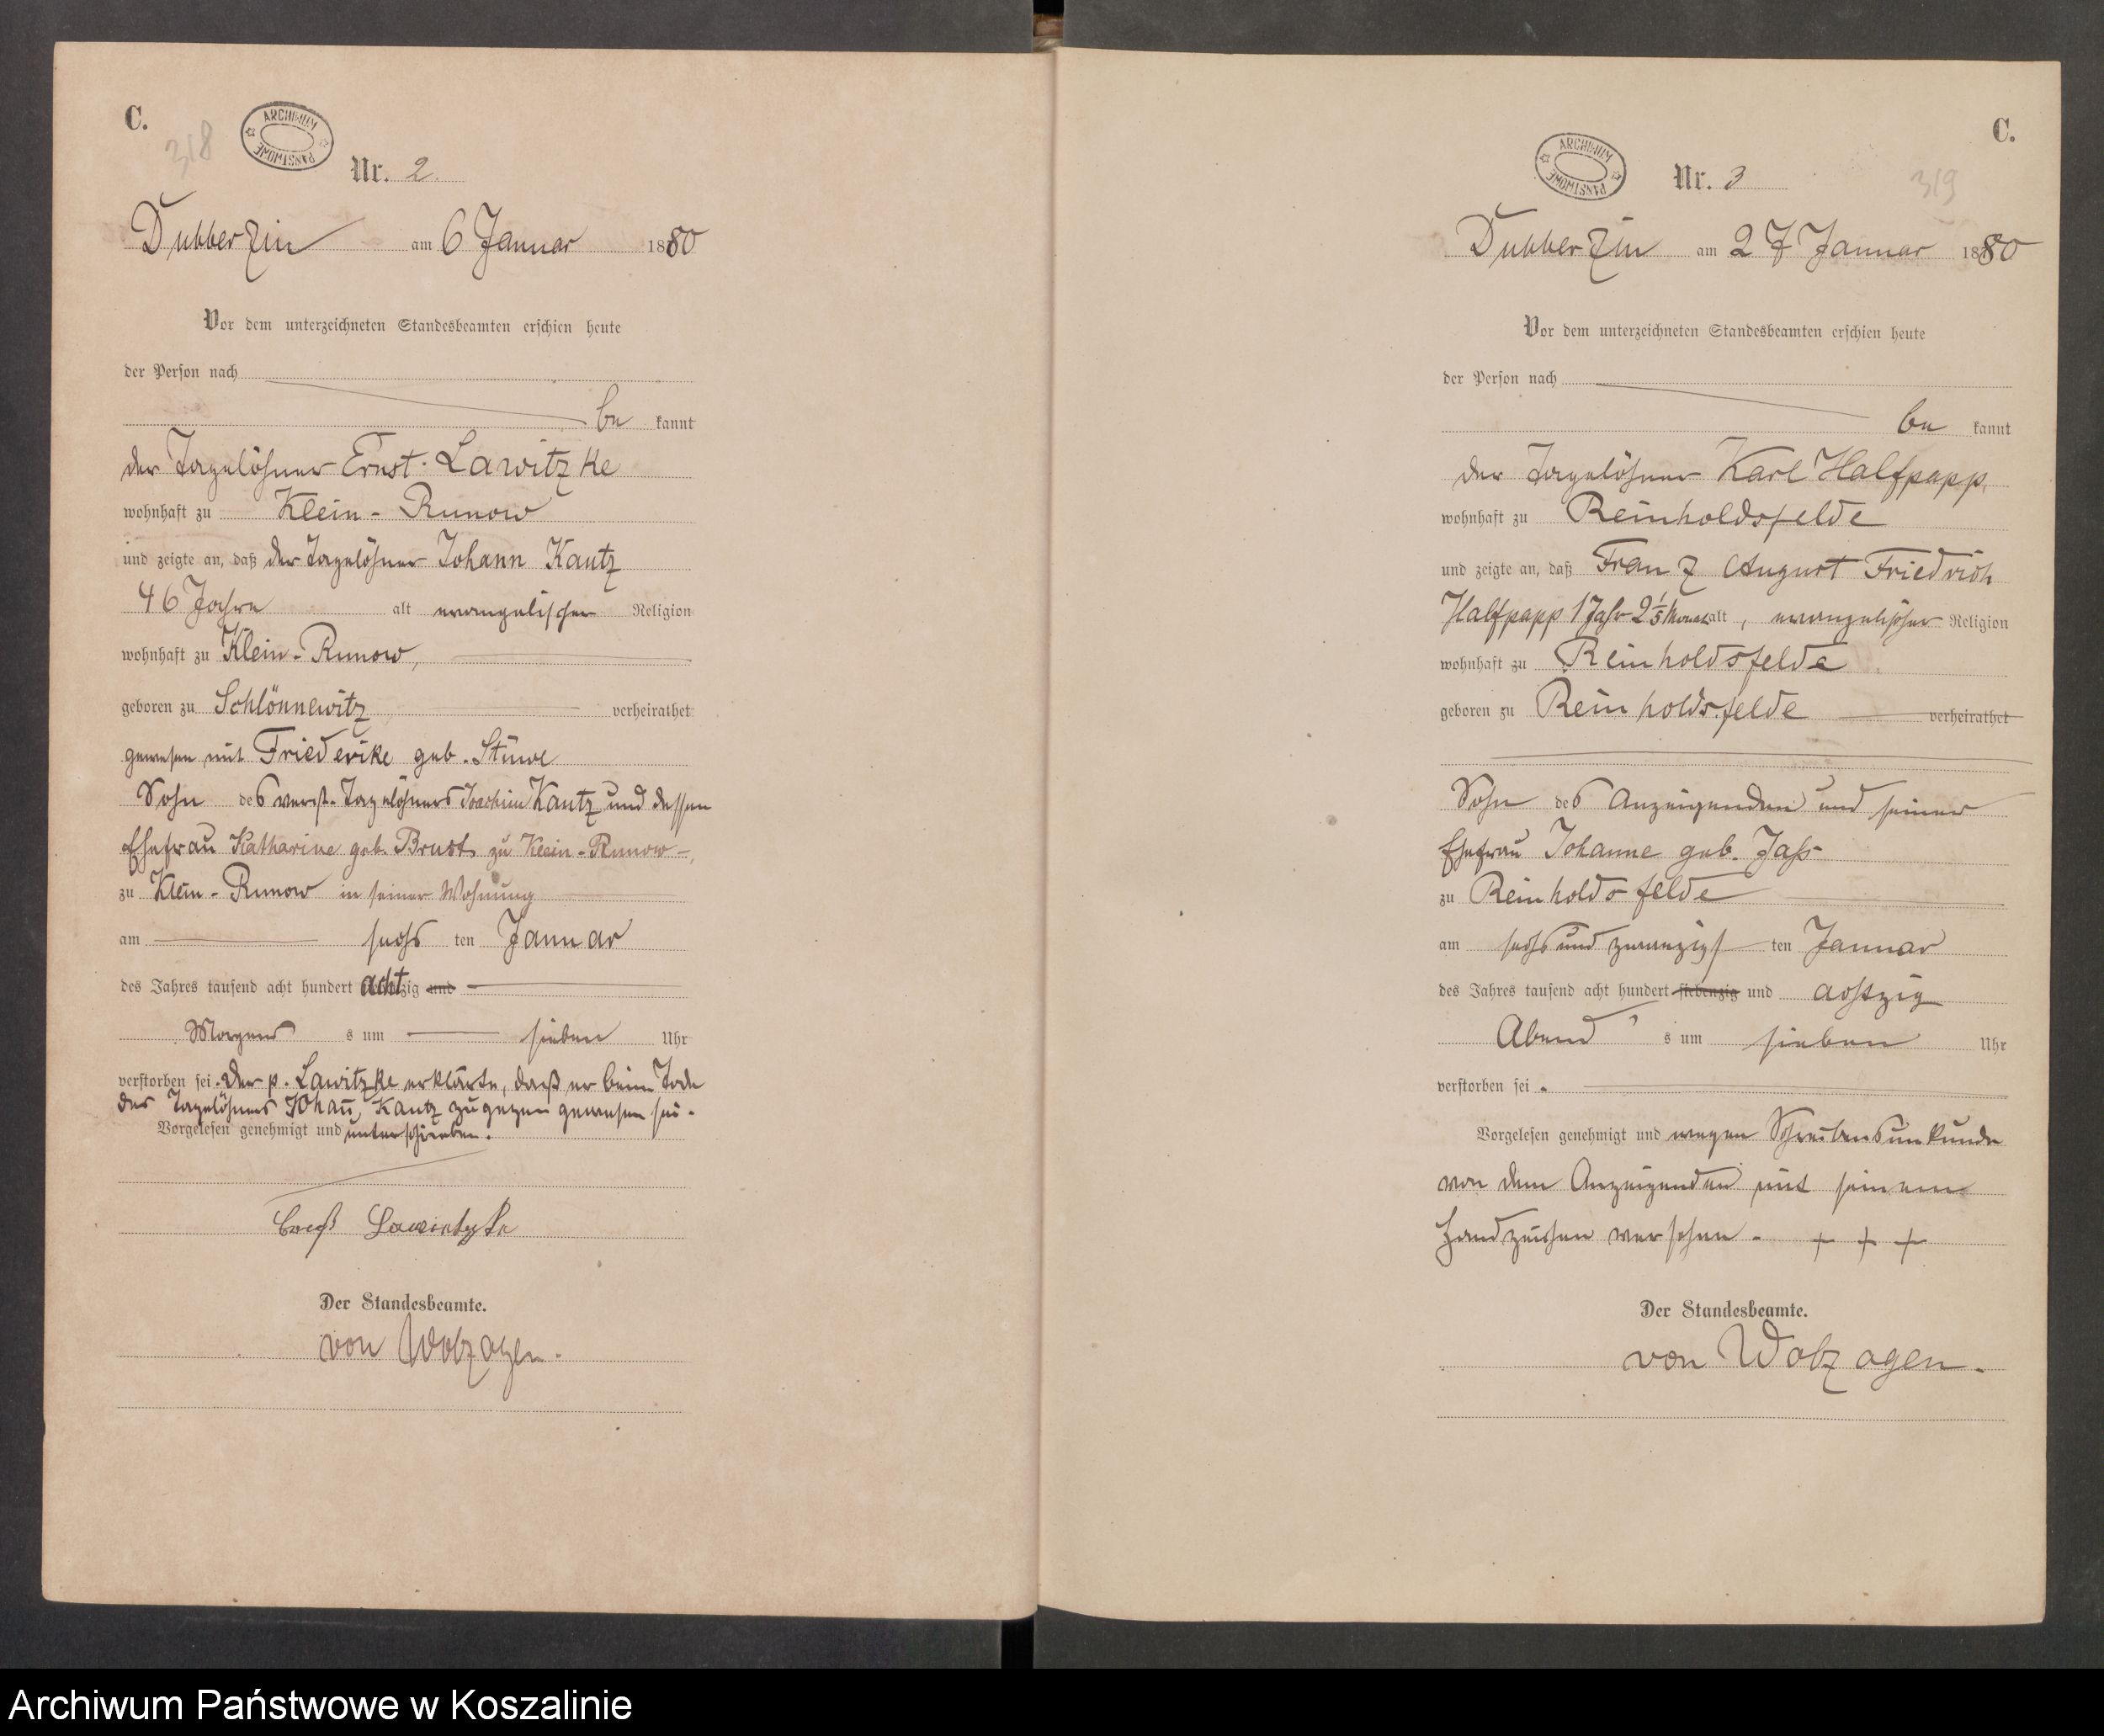 C.
318
ARCHIWUM PAŃSTWOWE
Nr. 2.
Dubberzin am 6 Januar 1880
Vor dem unterzeichneten Standesbeamten erschien heute
der Person nach
be kannt
der Tagelöhner Ernst Lawitzke
wohnhaft zu Klein-Runow
und zeigte an, daß der Tagelöhner Johann Kautz
46 Jahre alt evangelischer Religion
wohnhaft zu Klein-Runow,
geboren zu Schlönnewitz verheirathet
gewesen mit Friederike geb. Stüwe
Sohn des verst. Tagelöhners Joachim Kautz und dessen
Ehefrau Katharine geb. Brust zu Klein-Runow
zu Klein-Runow in seiner Wohnung
am sechs ten Januar
des Jahres tausend acht hundert achtzig und
Morgens um sieben Uhr
verstorben sei. Der p. Lawitzke erklärte, daß er beim Tode
des Tagelöhners Johañ Kautz zugegen gewesen sei.
Vorgelesen genehmigt und unterschrieben.
Ernst Lawitzke
Der Standesbeamte.
von Wolzogen.
C.
319
ARCHIWUM PAŃSTWOWE
Nr. 3
Dubberzin am 27 Januar 1880
Vor dem unterzeichneten Standesbeamten erschien heute
der Person nach
be kannt
der Tagelöhner Karl Halfpapp,
wohnhaft zu Reinholdsfelde
und zeigte an, daß Franz August Friedrich
Halfpapp 1 Jahr 2 1/5 Monat alt, evangelischer Religion
wohnhaft zu Reinholdsfelde
geboren zu Reinholdsfelde verheirathet
Sohn des Anzeigenden und seiner
Ehefrau Johanne geb. Jaß
zu Reinholdsfelde
am sechs und zwanzigsten Januar
des Jahres tausend acht hundert siebenzig und achtzig
Abends um sieben Uhr
verstorben sei.
Vorgelesen genehmigt und wegen Schreibensunkunde
von dem Anzeigenden mit seinem
Handzeichen versehen. + + +
Der Standesbeamte.
von Wolzogen.
Archiwum Państwowe w Koszalinie